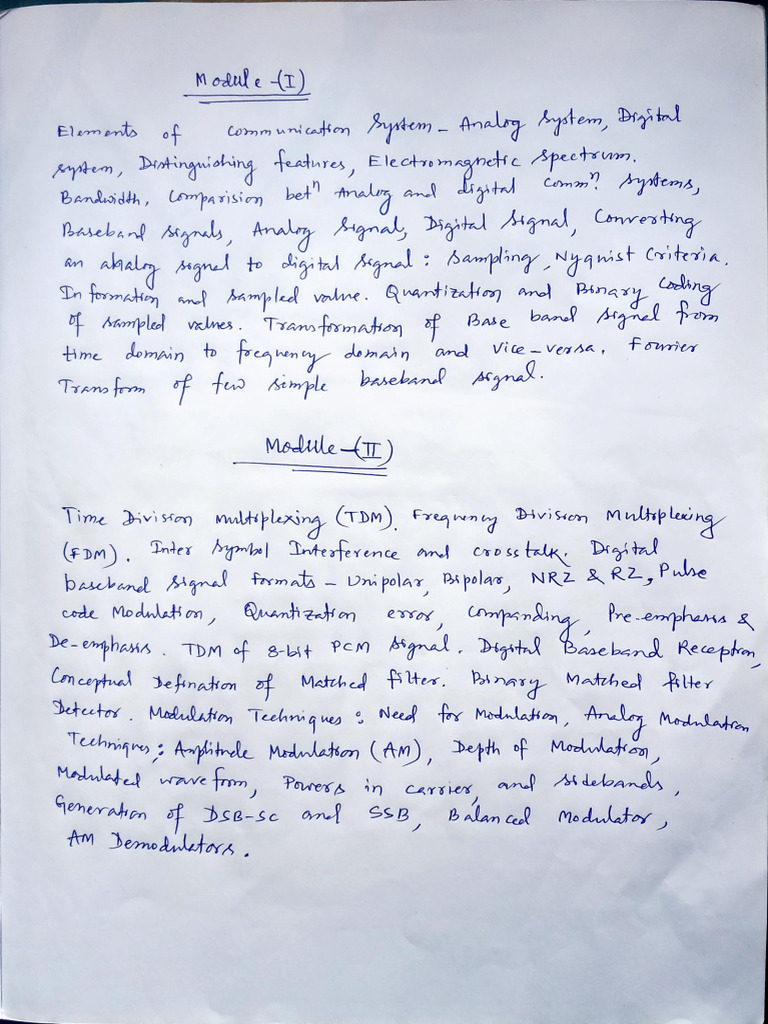 Module-(I)
Elements of communication System - Analog System, Digital
system, Distinguishing features, Electromagnetic spectrum.
Bandwidth, Comparision betⁿ Analog and digital commⁿ. systems,
Baseband signals, Analog Signal, Digital Signal, Converting
an analog signal to digital signal: Sampling, Nyquist Criteria.
Information and sampled value. Quantization and Binary Coding
of sampled values. Transformation of Base band signal from
time domain to frequency domain and vice-versa. Fourier
Transform of few simple baseband signal.
Module-(II)
Time Division Multiplexing (TDM). Frequency Division Multiplexing
(FDM). Inter Symbol Interference and crosstalk. Digital
baseband signal formats - Unipolar, Bipolar, NRZ & RZ, Pulse
code Modulation, Quantization error, Companding, Pre-emphasis &
De-emphasis. TDM of 8-bit PCM signal. Digital Baseband Reception,
Conceptual Defination of Matched filter. Binary Matched filter
Detector. Modulation Techniques: Need for Modulation, Analog Modulation
Techniques: Amplitude Modulation (AM), Depth of Modulation,
Modulated waveform, Powers in carrier, and sidebands,
Generation of DSB-SC and SSB, Balanced Modulator,
AM Demodulators.